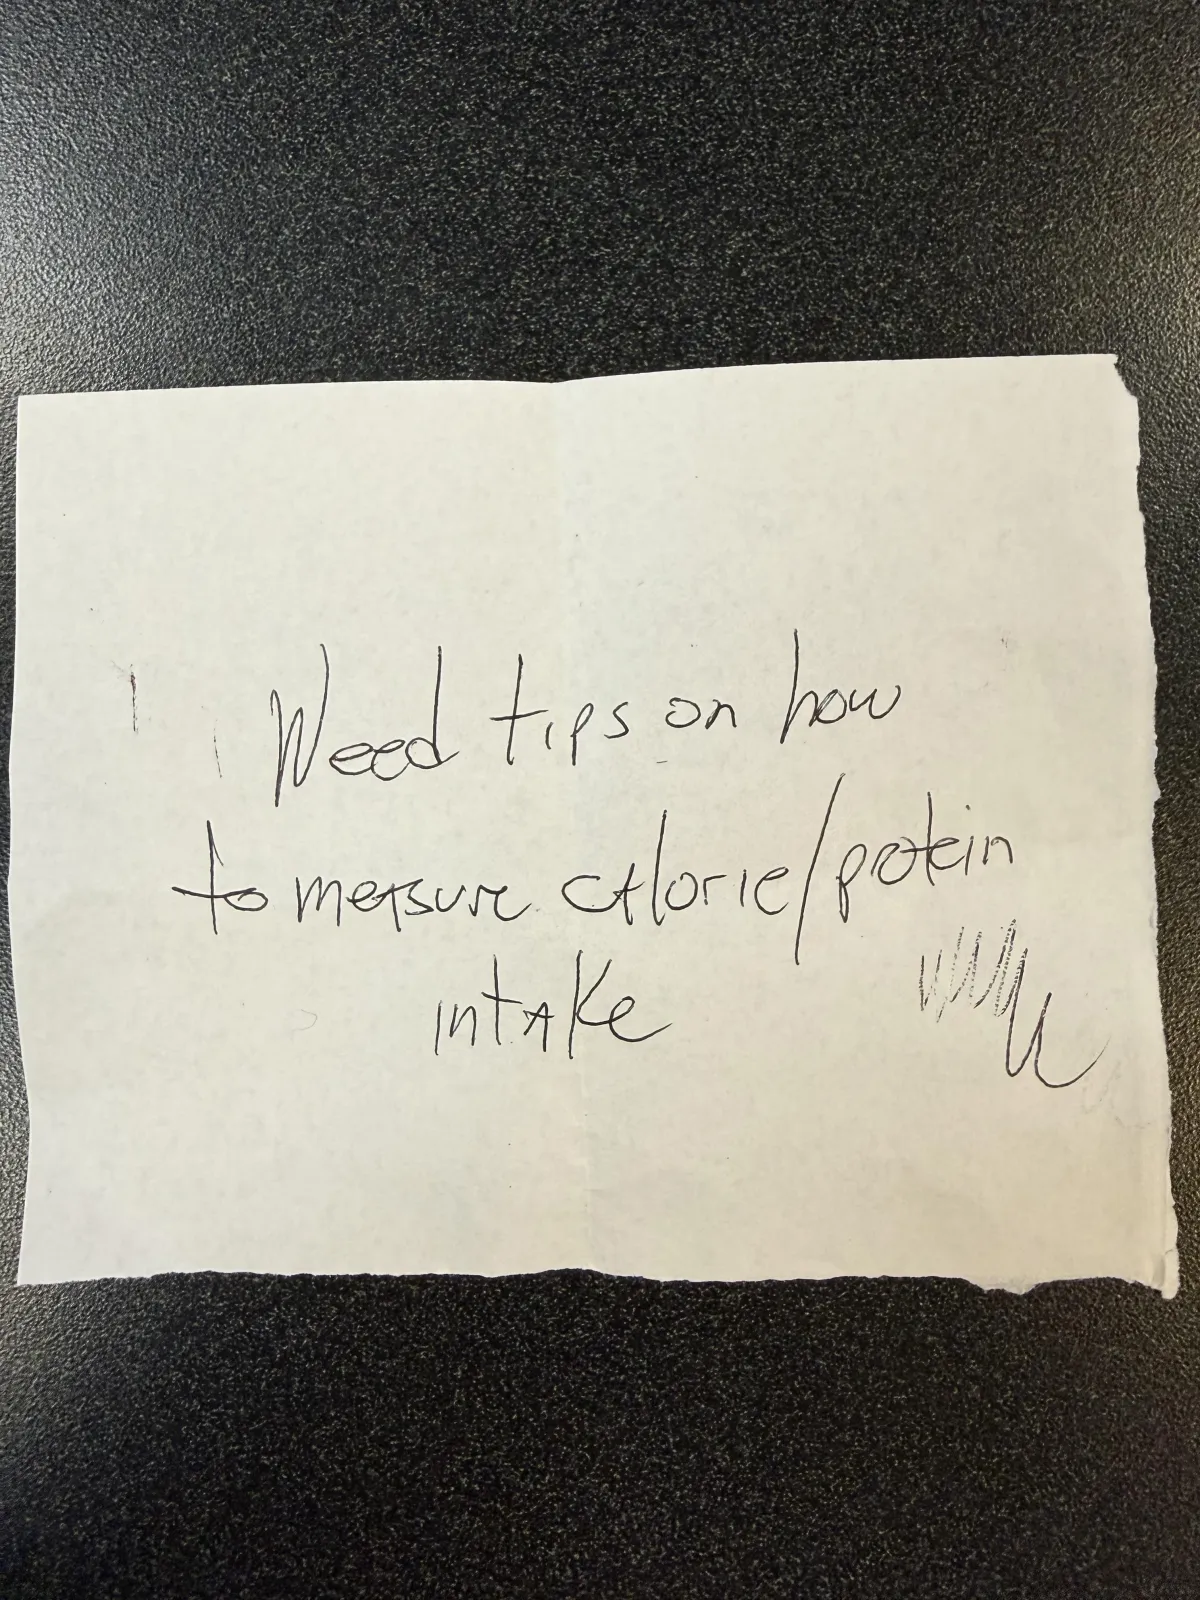 Need tips on how
to measure calorie/protein
intake